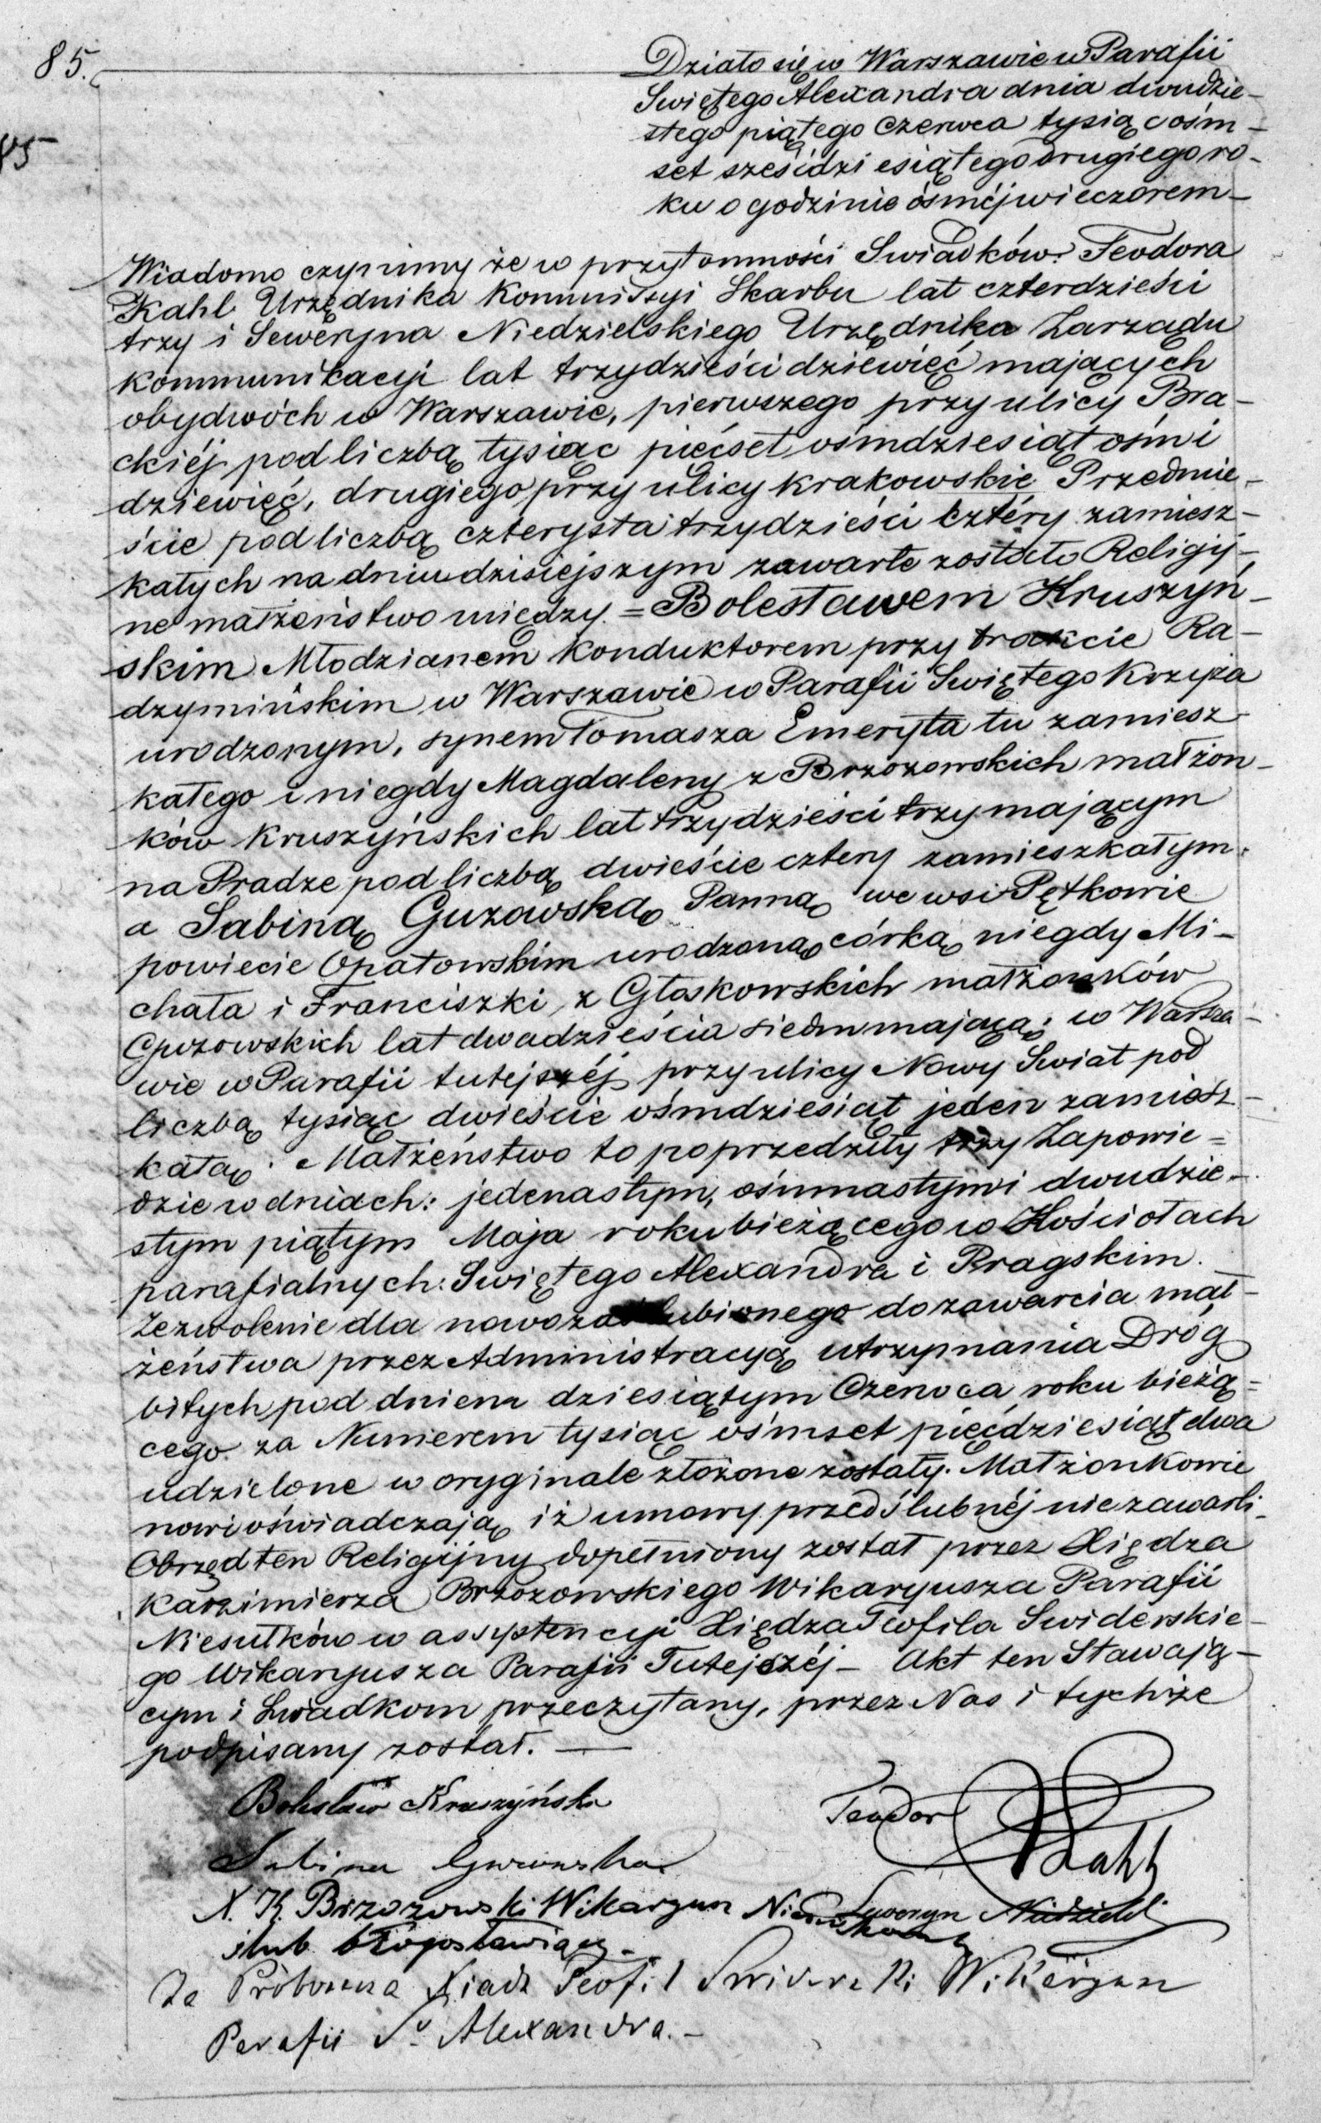 85.
85
Działo się w Warszawie w Parafii
Swiętego Alexandra dnia dwudzie-
stego piątego Czerwca tysiąc ośm-
set sześćdziesiątego drugiego ro-
ku o godzinie ósméj wieczorem -
Wiadomo czynimy że w przytomności Swiadków: Teodora
Kahl Urzędnika Kommissyi Skarbu lat czterdzieści
trzy i Seweryna Niedzielskiego Urzędnika Zarządu
Kommunikacyi lat trzydzieści dziewięć mających
obydwóch w Warszawie, pierwszego przy ulicy Bra-
ckiéj pod liczbą tysiąc pięćset ośmdziesiąt ośm i
dziewięć, drugiego przy ulicy Krakowskie Przedmie-
ście pod liczbą czterysta trzydzieści cztéry zamiesz-
kałych na dniu dzisiejszym zawarte zostało Religij-
ne małżeństwo między = Bolesławem Kruszyń-
skim Młodzianem Konduktorem przy trakcie Ra-
dzymińskim w Warszawie w Parafii Swiętego Krzyża
urodzonym, synem Tomasza Emeryta tu zamiesz-
kałego i niegdy Magdaleny z Brzozowskich małżon-
ków Kruszyńskich lat trzydzieści trzy mającym
na Pradze pod liczbą dwieście cztery zamieszkałym:
a Sabiną Guzowską Panną we wsi Pętkowie
powiecie Opatowskim urodzoną córką niegdy Mi-
chała i Franciszki z Głoskowskich małżonków
Guzowskich lat dwadzieścia siedm mającą; w Warsza-
wie w Parafii tutejszéj przy ulicy Nowy Swiat pod
liczbą tysiąc dwieście ośmdziesiąt jeden zamiesz-
kałą. Małżeństwo to poprzedziły trzy Zapowie=
dzie w dniach: jedenastym, ośmnastym i dwudzie-
stym piątym Maja roku bieżącego w Kościołach
parafialnych: Swiętego Alexandra i Pragskim.
Zezwolenie dla nowozaślubionego do zawarcia mał-
żeństwa przez Administracyą utrzymania Dróg
bitych pod dniem dziesiątym Czerwca roku bieżą=
cego za Numerem tysiąc ośmset pięćdziesiąt dwa
udzielone w oryginale złożone zostały. Małżonkowie
nowi oświadczają iż umowy przedślubnéj nie zawarli.
Obrzęd ten Religijny dopełniony został przez Xiędza
Kazimierza Brzozowskiego Wikaryusza Parafii
Niesułków w assystencyi Xiędza Teofila Swiderskie-
go Wikaryusza Parafii Tutejszéj - Akt ten Stawają-
cym i Swiadkom przeczytany, przez Nas i tychże
podpisany został. -
Bolesław Kruszyński
Teodor Kahl
Sabina Guzowska
X. K. Brzozowski Wikaryusz
Seweryn Niedzielski
ślub błogosławiący -
Za Proboszcza Xiądz Teofil Swiderski Wikaryusz
Parafii S. Alexandra. -